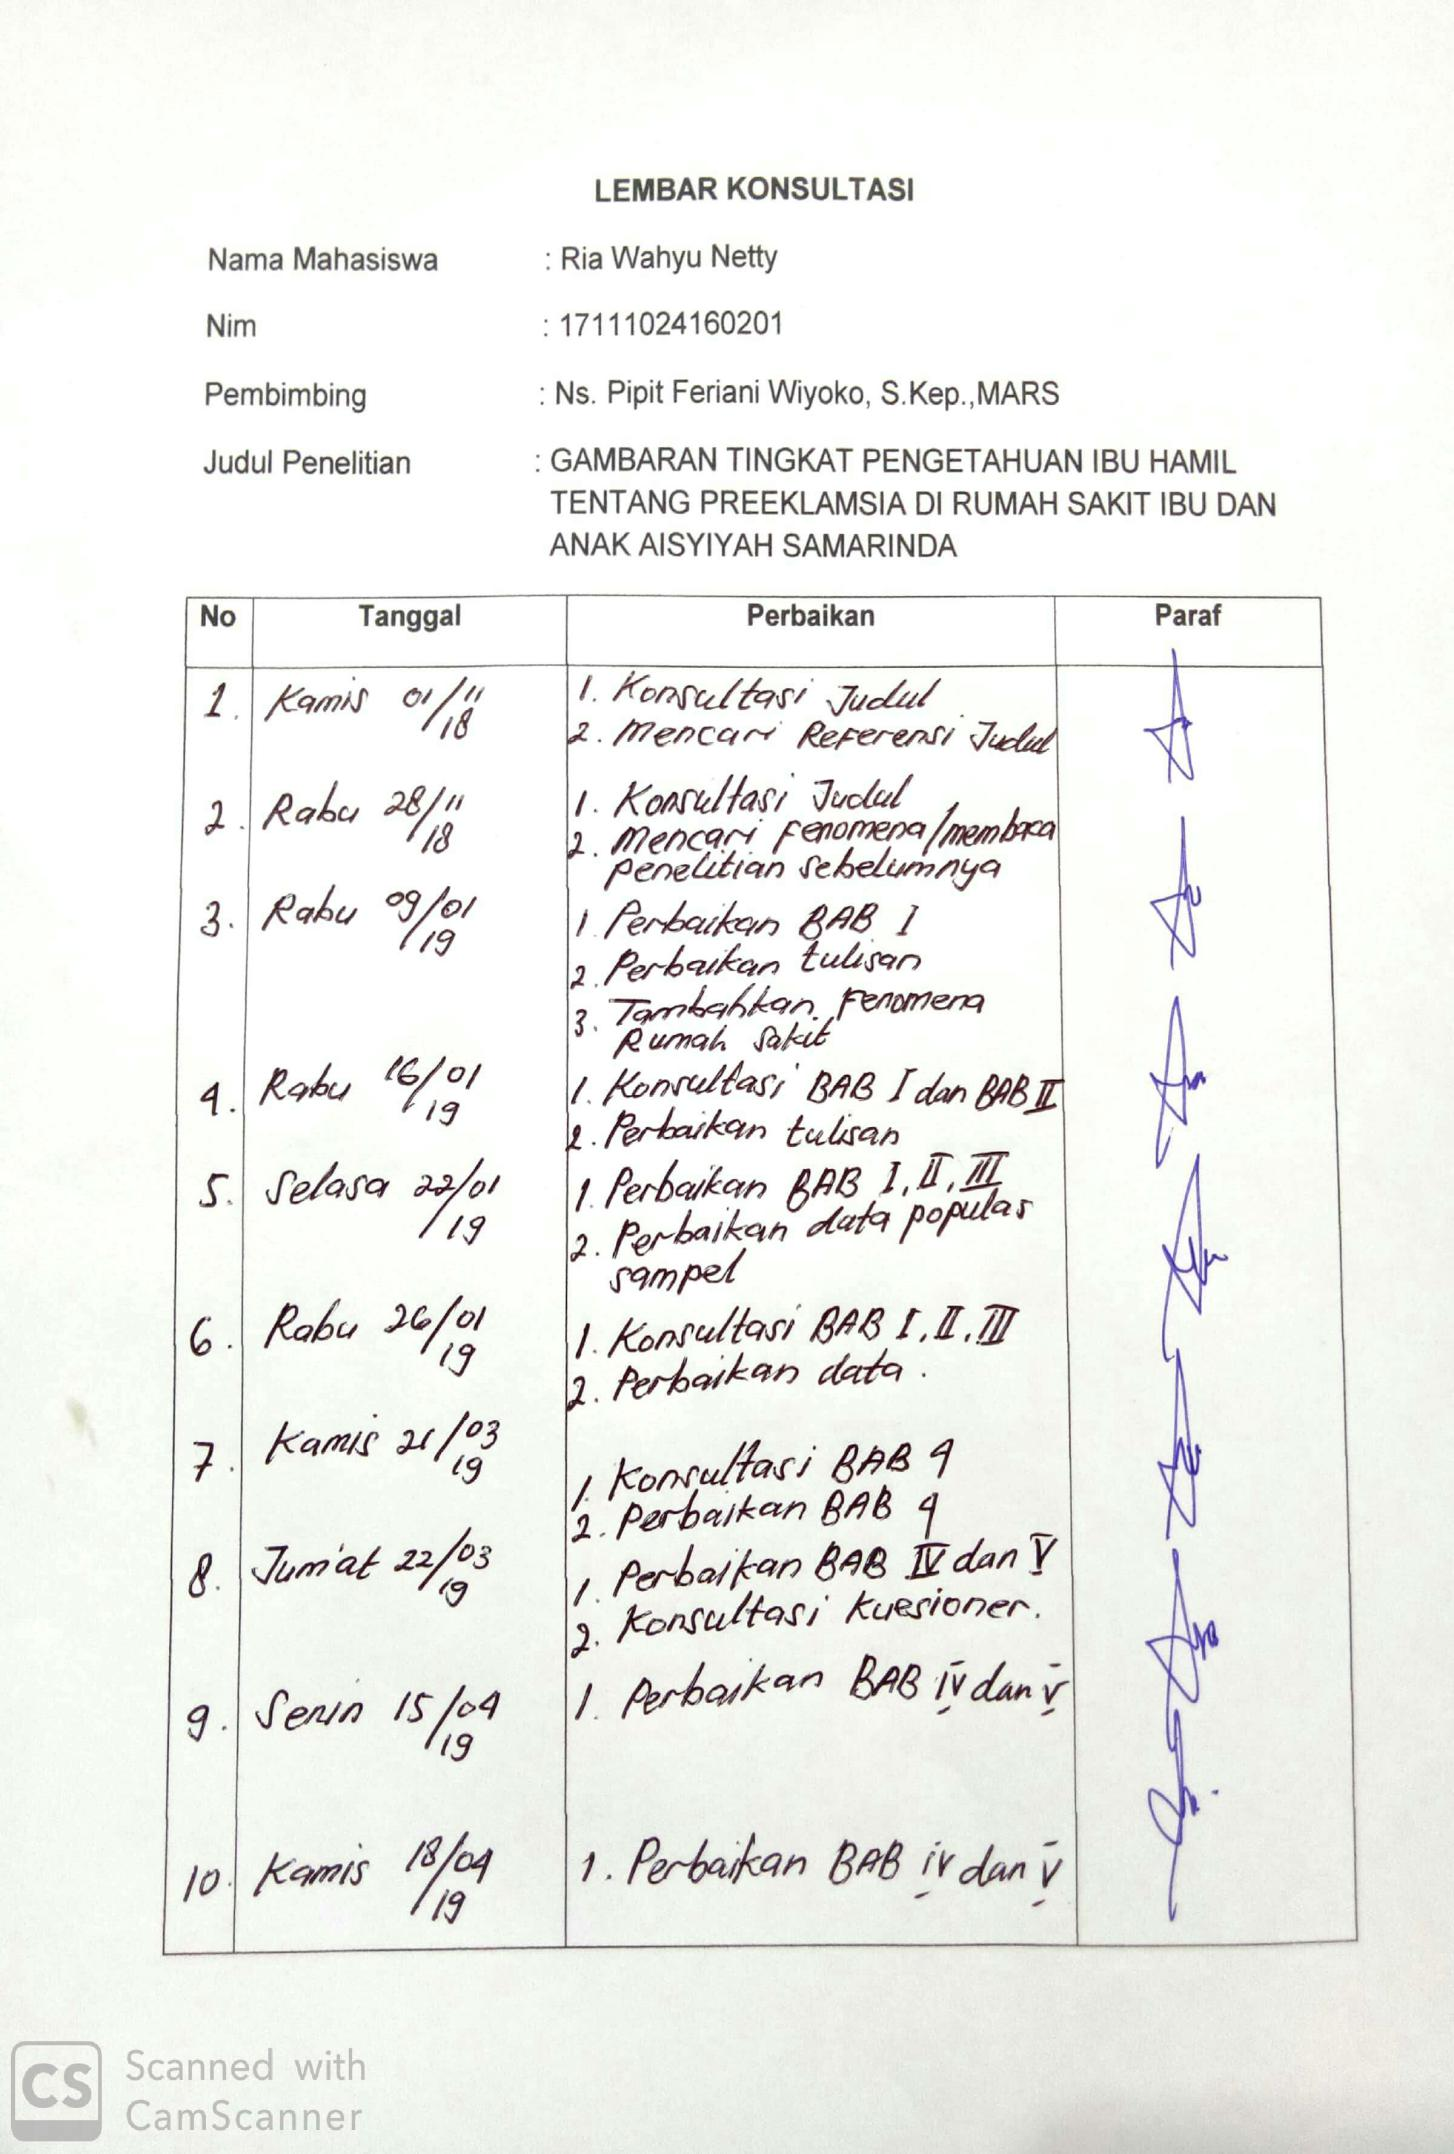 LEMBAR KONSULTASI
Nama Mahasiswa : Ria Wahyu Netty
Nim : 17111024160201
Pembimbing : Ns. Pipit Feriani Wiyoko, S.Kep.,MARS
Judul Penelitian : GAMBARAN TINGKAT PENGETAHUAN IBU HAMIL
TENTANG PREEKLAMSIA DI RUMAH SAKIT IBU DAN
ANAK AISYIYAH SAMARINDA
No Tanggal Perbaikan Paraf
1. Kamis 01/11/18 1. Konsultasi Judul
2. Mencari Referensi Judul
2. Rabu 28/11/18 1. Konsultasi Judul
2. Mencari Fenomena/membaca
penelitian sebelumnya
3. Rabu 09/01/19 1. Perbaikan BAB I
2. Perbaikan tulisan
3. Tambahkan Fenomena
Rumah Sakit
4. Rabu 16/01/19 1. Konsultasi BAB I dan BAB II
2. Perbaikan tulisan
5. Selasa 22/01/19 1. Perbaikan BAB I, II, III
2. Perbaikan data populas
sampel
6. Rabu 26/01/19 1. Konsultasi BAB I, II, III
2. Perbaikan data.
7. Kamis 21/03/19 1. Konsultasi BAB 4
2. Perbaikan BAB 4
8. Jum'at 22/03/19 1. Perbaikan BAB IV dan V
2. Konsultasi Kuesioner.
9. Senin 15/04/19 1. Perbaikan BAB IV dan V
10. Kamis 18/04/19 1. Perbaikan BAB IV dan V
CS Scanned with
CamScanner